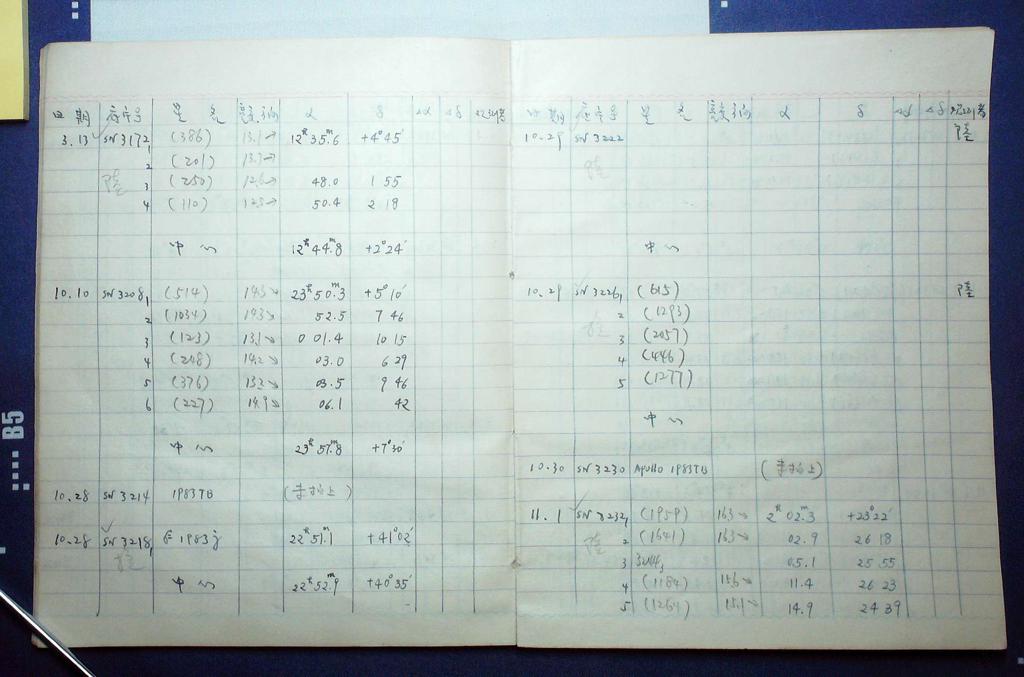 日期 底片号 星名 亮度 α δ Δα Δδ 观测者
3.13 SN3172 1 (386) 13.1→ 12h35m.6 +4°45′
2 (201) 13.7→
陆 3 (250) 12.6→ 48.0 1 55
4 (110) 12.3→ 50.4 2 18
中心 12h44m.8 +2°24′
10.10 SN3208 1 (514) 14.3↘ 23h50m.3 +5°10′
2 (1034) 14.3↘ 52.5 7 46
3 (123) 13.1↘ 0 01.4 10 15
4 (248) 14.2↘ 03.0 6 29
5 (376) 13.2↘ 03.5 9 46
6 (227) 14.9↘ 06.1 42
中心 23h57m.8 +7°30′
10.28 SN3214 1983TB (未拍上)
10.28 SN3218 1 1983j 22h51m.1 +41°02′
陆
中心 22h52m.9 +40°35′
日期 底片号 星名 亮度 α δ Δα Δδ 观测者
10.29 SN3222 陆
陆
中心
10.29 SN3226 1 (615) 陆
2 (1293)
陆 3 (2057)
4 (446)
5 (1277)
中心
10.30 SN3230 Apollo 1983TB (未拍上)
11.1 SN3232 1 (1959) 16.3↘ 2h02m.3 +23°22′
陆 2 (1641) 16.3↘ 02.9 26 18
3 05.1 25 55
4 (1184) 15.6→ 11.4 26 23
5 (1264) 15.1→ 14.9 24 39
B5